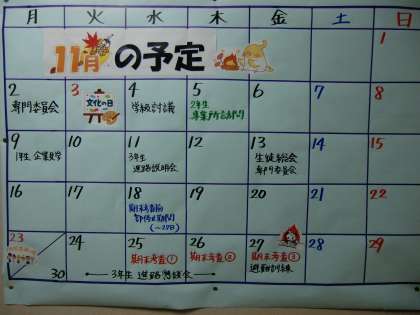 月 火 水 木 金 土 日
11月の予定
1
2 3 4 5 6 7 8
専門委員会
文化の日
学級討議
2年生
事業所訪問
9 10 11 12 13 14 15
1年生 企業見学
3年生
進路説明会
生徒総会
専門委員会
16 17 18 19 20 21 22
期末考査前
(~27日)
23 24 25 26 27 28 29
期末考査①
期末考査②
期末考査③
避難訓練
30
3年生 進路懇談会